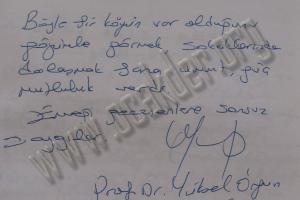 Böyle bir köyün var olduğunu
gözümle görmek, sokaklarında
dolaşmak bana umut, güç
mutluluk verdi.
Emeği geçenlere sonsuz
saygılar
Prof. Dr. Yüksel Örgün
www.scalder.org